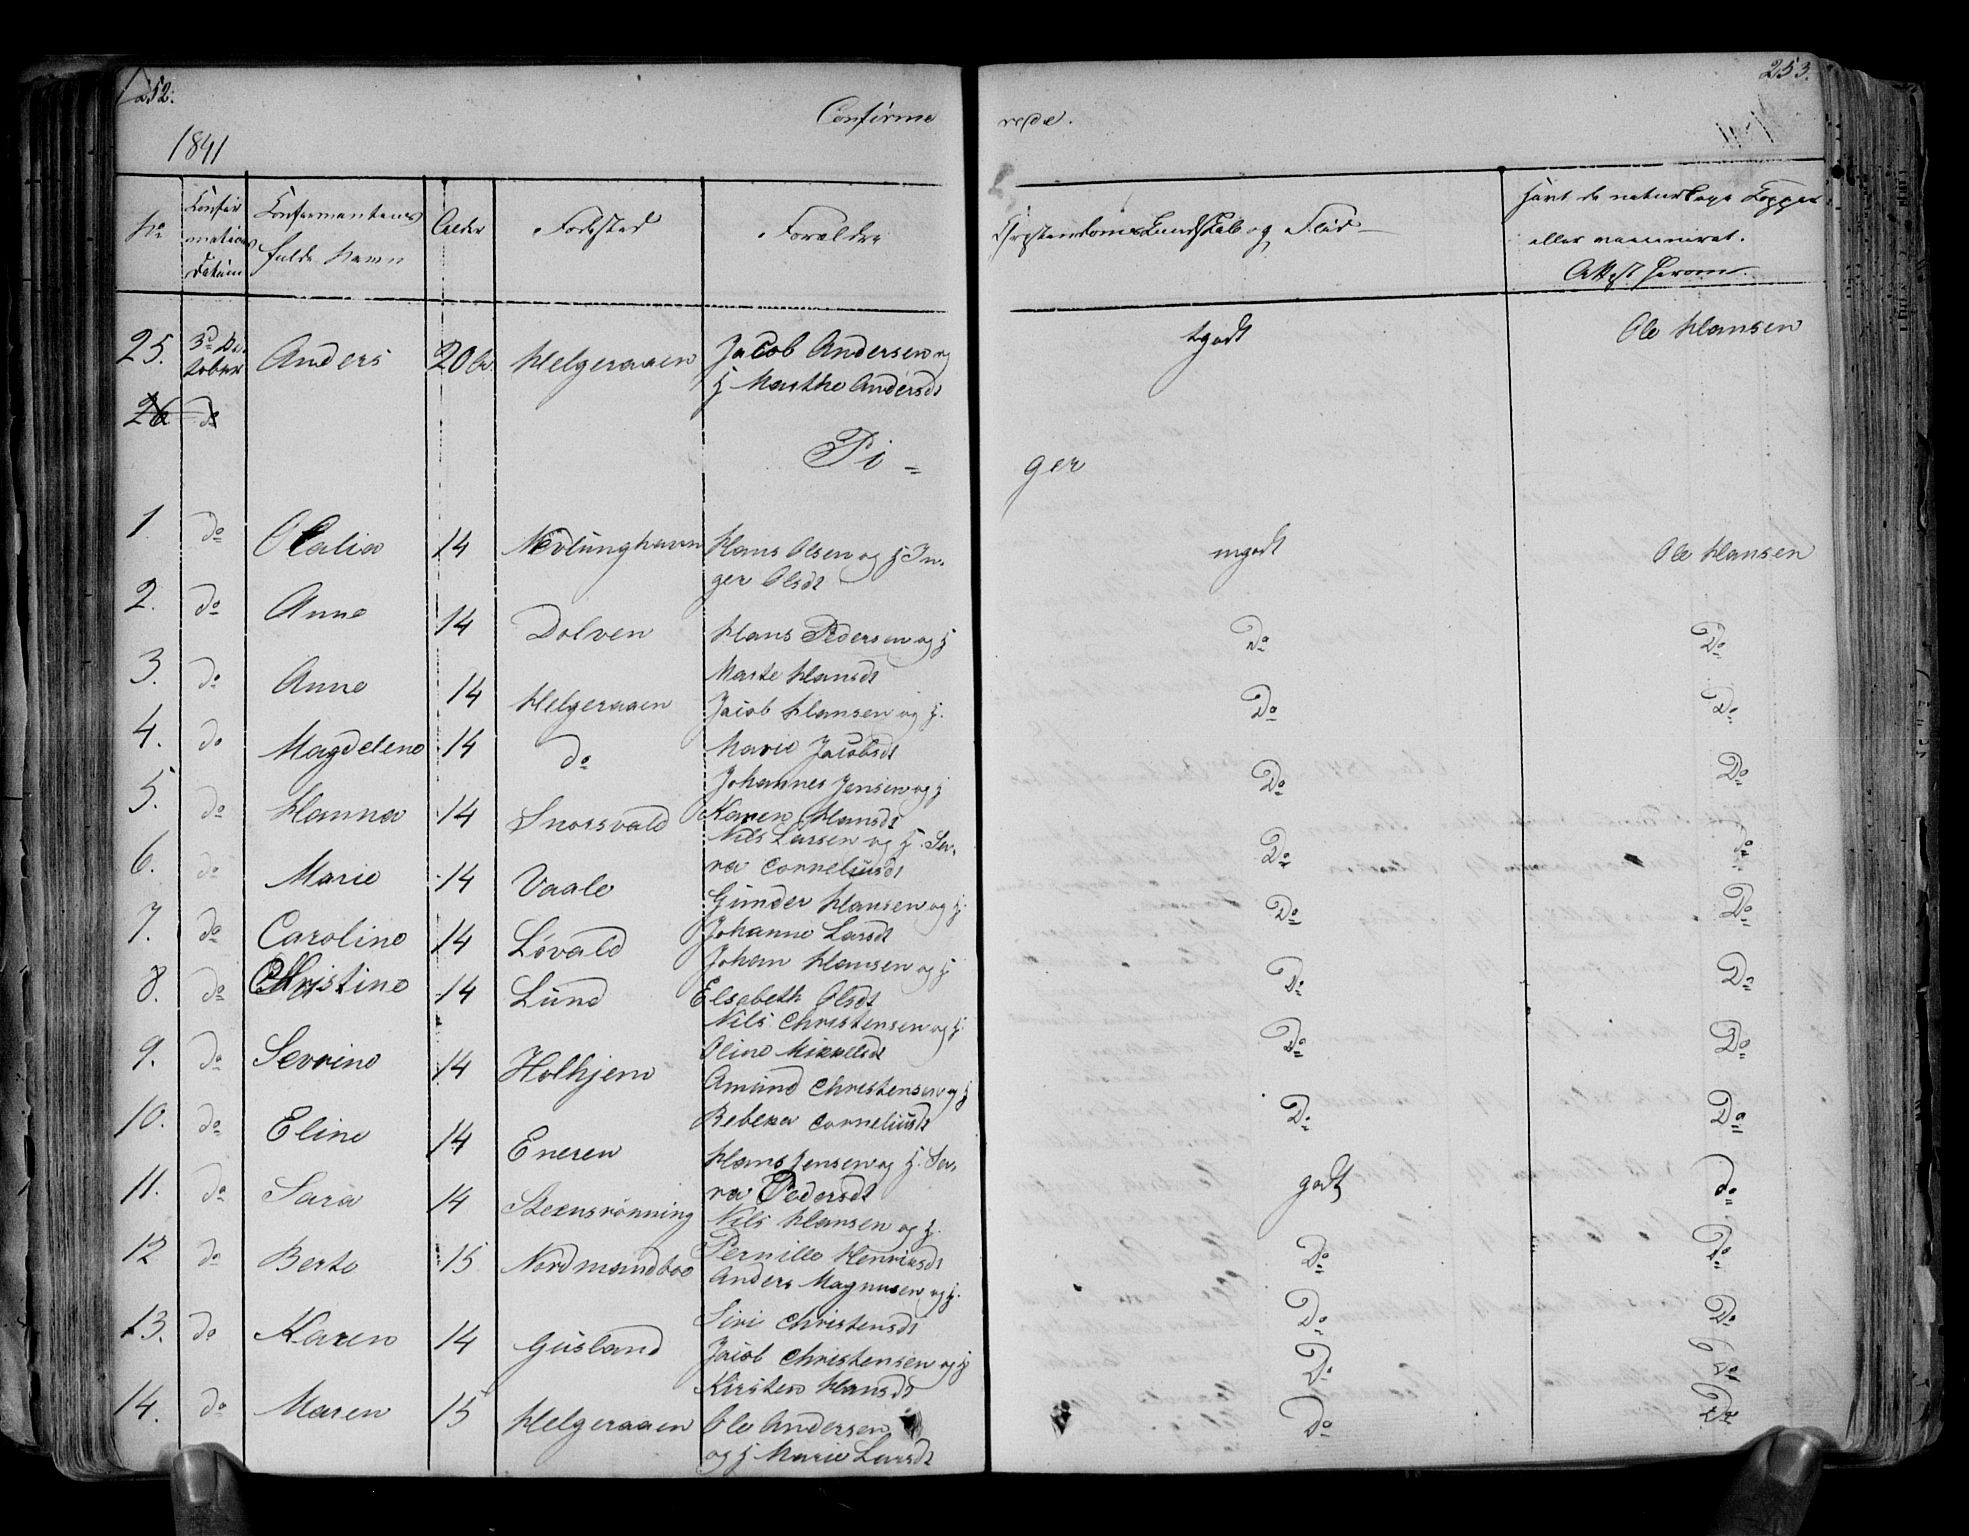 252.
253.
Confirme
rede.
1841
No
Confir
mations
Datum
Confirmantens
fulde Navn
Alder
Fødested
Forældre
Christendoms Kundskab og Flid
havt de naturlige Kopper
eller vaccineret.
Attest herom
25. 3d Oc
tober Anders 20 Helgeraaen Jacob Andersen og
H. Marthe Andersdt
tgodt Ole Hansen
26 do
Pi-
ger
1. do Olalia 14 Nevlunghavn Hans Olsen og H. In-
ger Olsdt
mgodt Ole Hansen
2. do Anne 14 Dolven Hans Pedersen og H
Marte Hansdt
Do Do
3. do Anne 14 Helgeraaen Jacob Hansen og H.
Marie Jacobsdt
Do Do
4. do Magdelene 14 do Johannes Jensen og H
Karen Hansdt
Do Do
5. do Hanna 14 Snorsvald Nils Larsen og H. Sa-
ra Corneliusdt
Do do
6. do Marie 14 Vaale Gunder Hansen og H.
Johanne Larsdt
Do Do
7. do Caroline 14 Løvald Johan Hansen og H
Elsabeth Olsdt
Do Do
8. do Christine 14 Lund Nils Christensen og H.
Oline Mikkelsdt
Do Do
9. do Sevrine 14 Holhjem Amund Christensen og H
Rebeka Corneliusdt
Do Do
10. do Eline 14 Eneren Hans Jensen og H. Sa-
ra Pedersdt
godt do
11. do Sara 14 Steensrønning Nils Hansen og H.
Pernille Henriksdt
Do Do
12 do Berte 15 Nordmandboe Anders Magnusen og H.
Siri Christensdt
Do Do
13. do Karen 14 Gusland Jacob Christensen og H
Kirsten Hansdt
Do Do
14. do Maren 15 Helgeraaen Ole Andersen
og H Marie Larsdt
Do Do